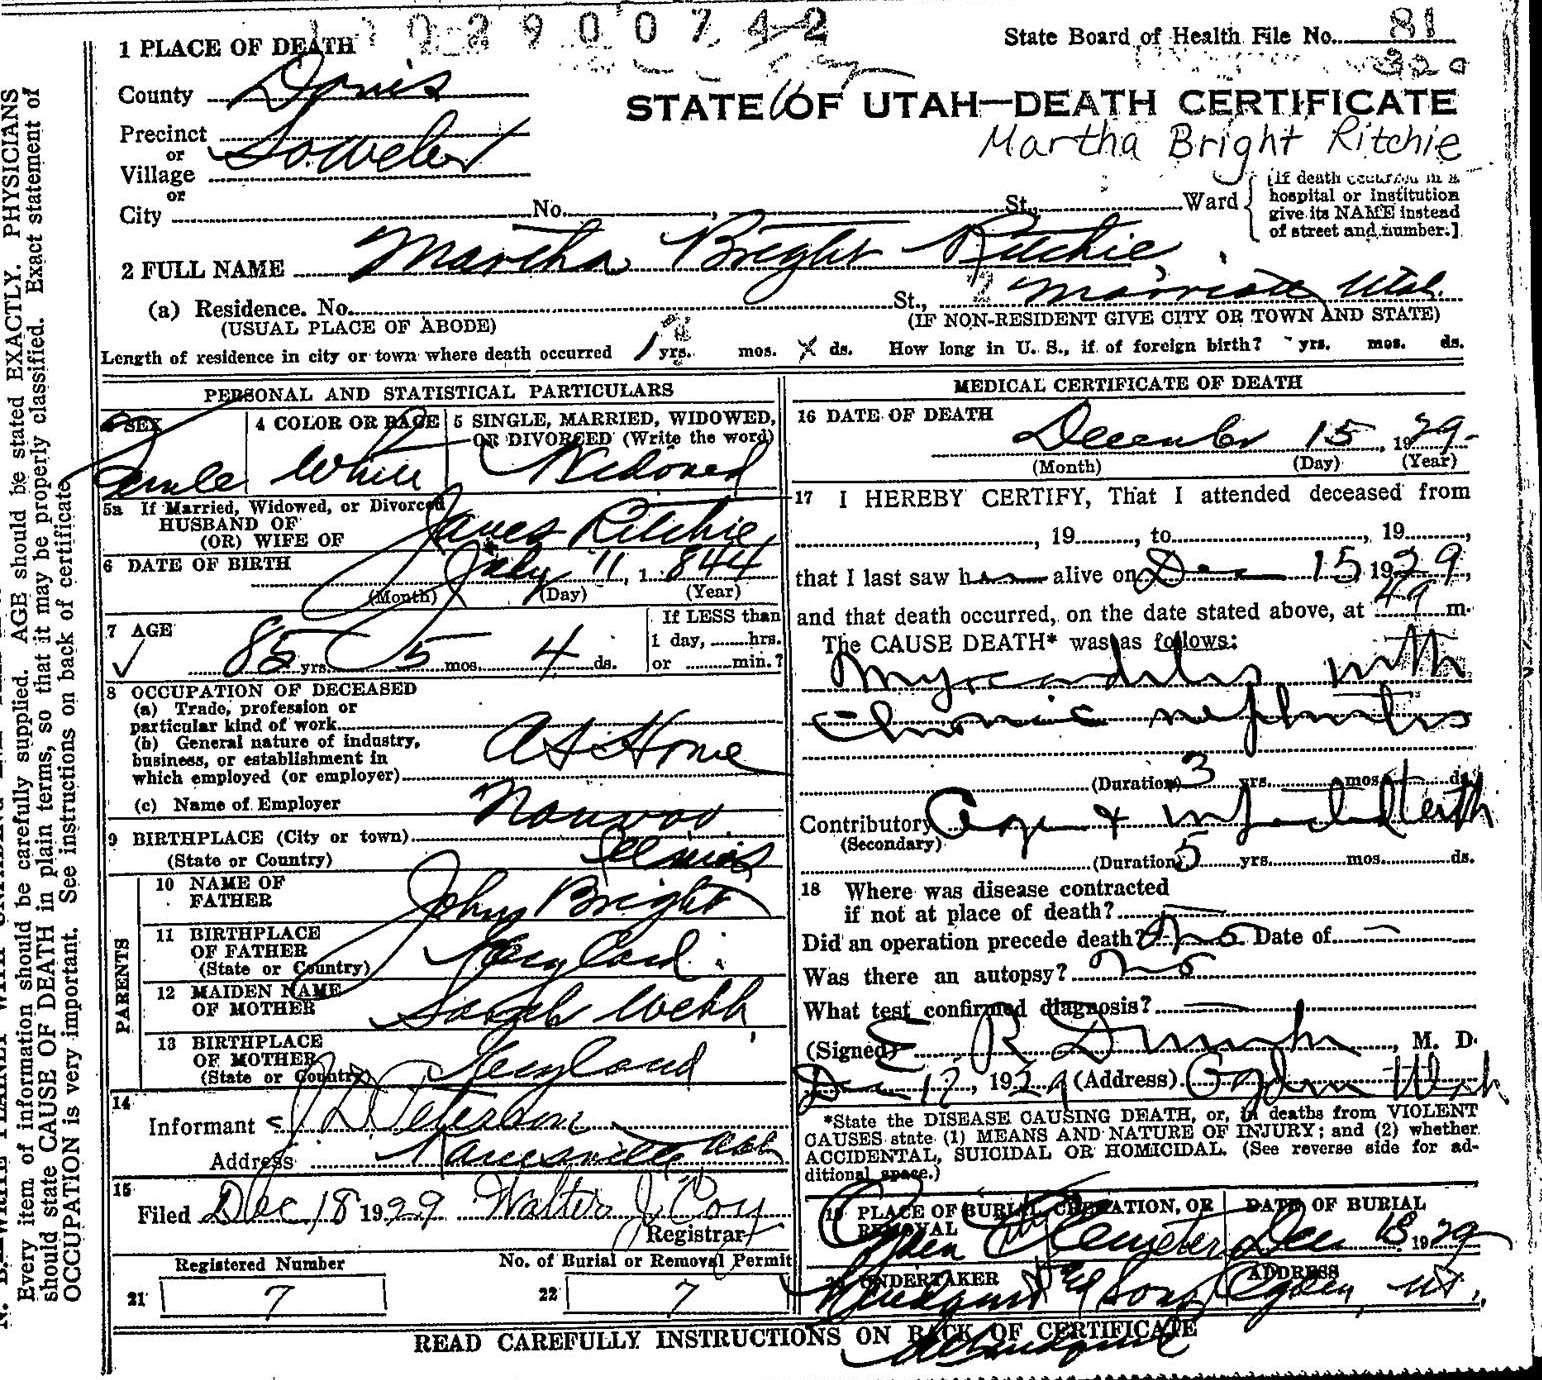 1 PLACE OF DEATH
State Board of Health File No. 81
County Davis
STATE OF UTAH—DEATH CERTIFICATE
Martha Bright Ritchie
Precinct So Weber
or
Village
or
City No. , St., Ward
[If death occurred in a hospital or institution give its NAME instead of street and number.]
2 FULL NAME Martha Bright Ritchie
(a) Residence. No. St., Marriott Utah
(USUAL PLACE OF ABODE) (IF NON-RESIDENT GIVE CITY OR TOWN AND STATE)
Length of residence in city or town where death occurred yrs. mos. ds. How long in U. S., if of foreign birth? yrs. mos. ds.
PERSONAL AND STATISTICAL PARTICULARS
SEX 4 COLOR OR RACE 5 SINGLE, MARRIED, WIDOWED, OR DIVORCED (Write the word)
Female White Widowed
5a If Married, Widowed, or Divorced
HUSBAND OF
(OR) WIFE OF James Ritchie
6 DATE OF BIRTH July 11, 1844
(Month) (Day) (Year)
7 AGE
85 yrs. 5 mos. 4 ds.
If LESS than
1 day, hrs.
or min.?
8 OCCUPATION OF DECEASED
(a) Trade, profession or
particular kind of work
(b) General nature of industry,
business, or establishment in
which employed (or employer) At Home
(c) Name of Employer
9 BIRTHPLACE (City or town) Nauvoo
(State or Country) Illinois
PARENTS
10 NAME OF
FATHER John Bright
11 BIRTHPLACE
OF FATHER
(State or Country) Maryland
12 MAIDEN NAME
OF MOTHER Sarah Webb
13 BIRTHPLACE
OF MOTHER
(State or Country) Maryland
14
Informant Peterson
Address Kanesville Utah
15
Filed Dec 18 1929 Walter J Coy
Registrar
Registered Number No. of Burial or Removal Permit
21 7 22 7
MEDICAL CERTIFICATE OF DEATH
16 DATE OF DEATH
December 15, 1929
(Month) (Day) (Year)
17 I HEREBY CERTIFY, That I attended deceased from
, 19 , to , 19 ,
that I last saw her alive on Dec 15 1929,
and that death occurred, on the date stated above, at m.
The CAUSE DEATH* was as follows:
Myocarditis with
Chronic nephritis
(Duration) 3 yrs. mos. ds.
Contributory Age & infected teeth
(Secondary)
(Duration) 5 yrs. mos. ds.
18 Where was disease contracted
if not at place of death?
Did an operation precede death? no Date of
Was there an autopsy? no
What test confirmed diagnosis?
(Signed) E R Dumke, M. D.
Dec 17, 1929 (Address) Ogden Utah
*State the DISEASE CAUSING DEATH, or, in deaths from VIOLENT
CAUSES state (1) MEANS AND NATURE OF INJURY; and (2) whether
ACCIDENTAL, SUICIDAL OR HOMICIDAL. (See reverse side for ad-
ditional space.)
19 PLACE OF BURIAL, CREMATION, OR REMOVAL DATE OF BURIAL
Ogden Cemetery Dec 18 1929
20 UNDERTAKER ADDRESS
Lindquist & Sons Ogden, Ut.
READ CAREFULLY INSTRUCTIONS ON BACK OF CERTIFICATE
Every item of information should be carefully supplied. AGE should be stated EXACTLY. PHYSICIANS
should state CAUSE OF DEATH in plain terms, so that it may be properly classified. Exact statement of
OCCUPATION is very important. See instructions on back of certificate